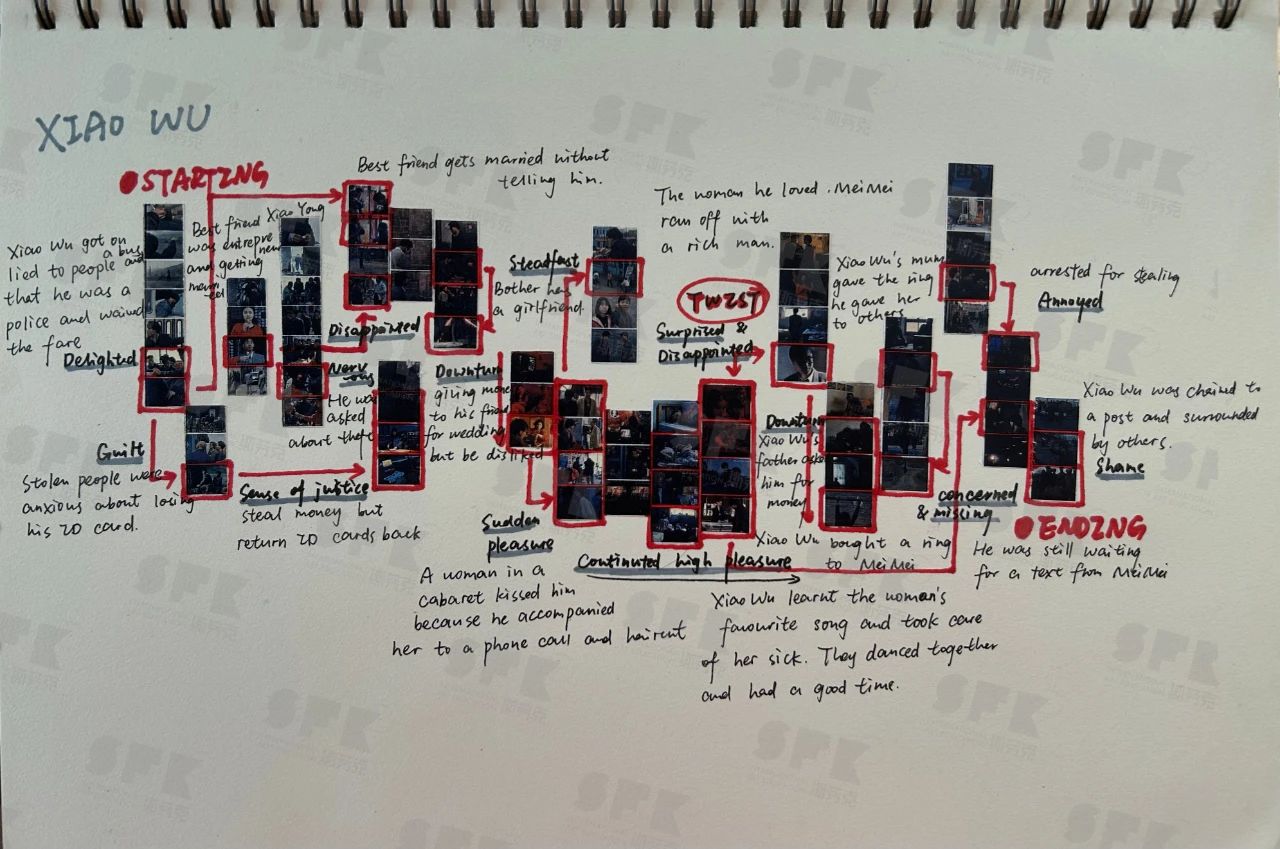 XIAO WU
STARTING
Xiao Wu got on
a bus
lied to people and
that he was a
police and waived
the fare
Delighted
Guilt
Stolen people were
anxious about losing
his ID card.
Best friend Xiao Yong
was entrepre neur
and getting
married
Sense of justice
steal money but
return ID cards back
Nervous
He was
asked
about theft
Best friend gets married without
telling him.
Disappointed
Bother has
a girlfriend.
Steadfast
Downturn
giving money
to his friend
for wedding
but be disliked
Sudden
pleasure
A woman in a
cabaret kissed him
because he accompanied
her to a phone call and haircut
Continuted high pleasure
Xiao Wu learnt the woman's
favourite song and took care
of her sick. They danced together
and had a good time.
The woman he loved. MeiMei
ran off with
a rich man.
TWIST
Surprised &
Disappointed
Downturn
Xiao Wu's
father asked
him for
money
Xiao Wu bought a ring
to MeiMei
Xiao Wu's mum
gave the ring
he gave her
to others
concerned
& missing
arrested for stealing
Annoyed
Xiao Wu was chained to
a post and surrounded
by others.
Shame
ENDING
He was still waiting
for a text from MeiMei
SFK